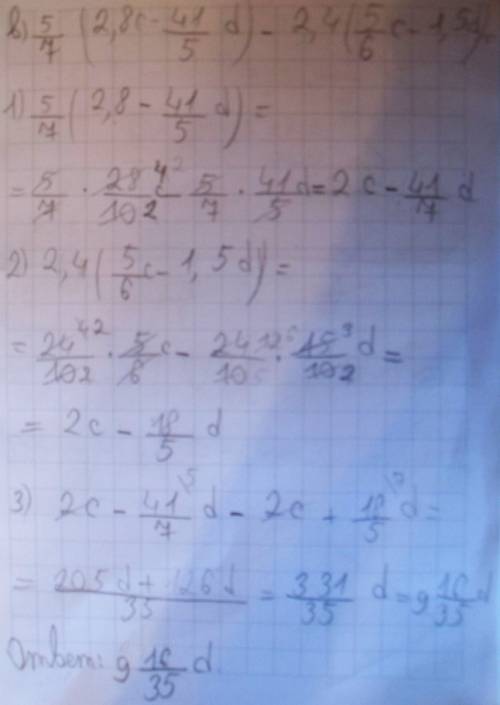 в) 5/7 (2,8c - 41/5 d) - 2,4(5/6 c - 1,5d)
1) 5/7 (2,8 - 41/5 d) =
= 5/7 · 28/10 c - 5/7 · 41/5 d = 2c - 41/7 d
2) 2,4(5/6 c - 1,5d) =
= 24/10 · 5/6 c - 24/10 · 15/10 d =
= 2c - 18/5 d
3) 2c - 41/7 d - 2c + 18/5 d =
= 205d + 126d/35 = 331/35 d = 9 16/35 d
Ответ: 9 16/35 d